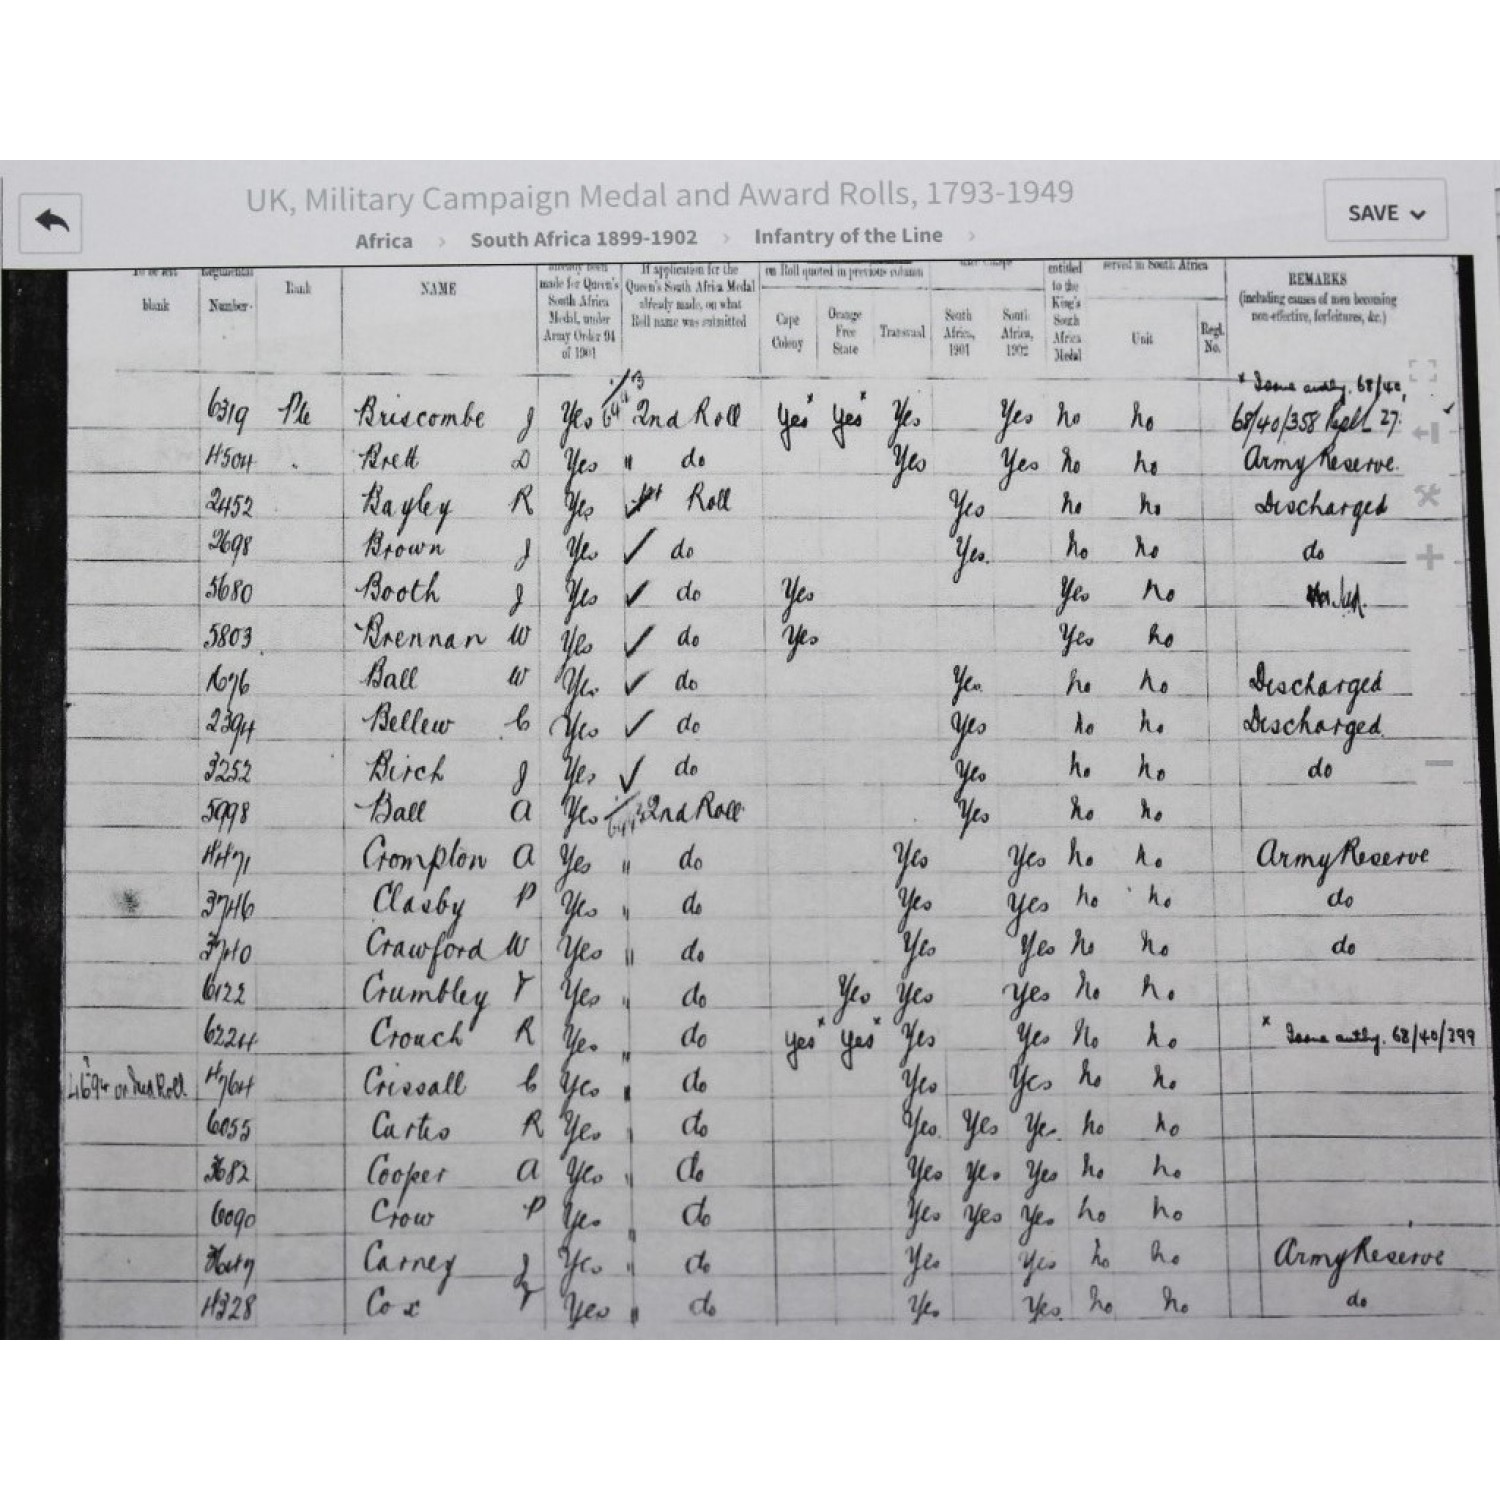 UK, Military Campaign Medal and Award Rolls, 1793-1949
SAVE
Africa > South Africa 1899-1902 > Infantry of the Line >
To be left blank
Regimental Number
Rank
NAME
already been made for Queen's South Africa Medal, under Army Order 94 of 1901
If application for the Queen's South Africa Medal already made, on what Roll name was submitted
on Roll quoted in previous column
Cape Colony
Orange Free State
Transvaal
South Africa, 1901
South Africa, 1902
entitled to the King's South Africa Medal
served in South Africa
Unit
Regl. No.
REMARKS
(including causes of men becoming non-effective, forfeitures, &c.)
* Issue authy. 68/40,
6319 Pte Briscombe J Yes 2nd Roll Yes* Yes* Yes Yes no no 68/40/358 27
4504 Brett D Yes " do Yes Yes no no Army Reserve
2452 Bayley R Yes 1st Roll Yes no no Discharged
2698 Brown J Yes ✓ do Yes. no no do
5680 Booth J Yes ✓ do Yes Yes no
5803 Brennan W Yes ✓ do Yes Yes no
1676 Ball W Yes ✓ do Yes no no Discharged
2394 Bellew C Yes ✓ do Yes no no Discharged
3252 Birch J Yes ✓ do Yes no no do
5998 Ball A Yes 2nd Roll Yes no no
4471 Crompton A Yes " do Yes Yes no no Army Reserve
3746 Clasby P Yes " do Yes Yes no no do
3740 Crawford W Yes " do Yes Yes no no do
6122 Crumbley T Yes " do Yes Yes Yes no no
6224 Crouch R Yes " do Yes* Yes* Yes Yes no no * Issue authy. 68/40/399
4694 on Roll 4764 Crissall C Yes " do Yes Yes no no
6055 Curtis R Yes " do Yes Yes Yes no no
3682 Cooper A Yes " do Yes Yes Yes no no
6090 Crow P Yes " do Yes Yes Yes no no
3647 Carney J Yes " do Yes Yes no no Army Reserve
4328 Cox T Yes " do Yes Yes no no do